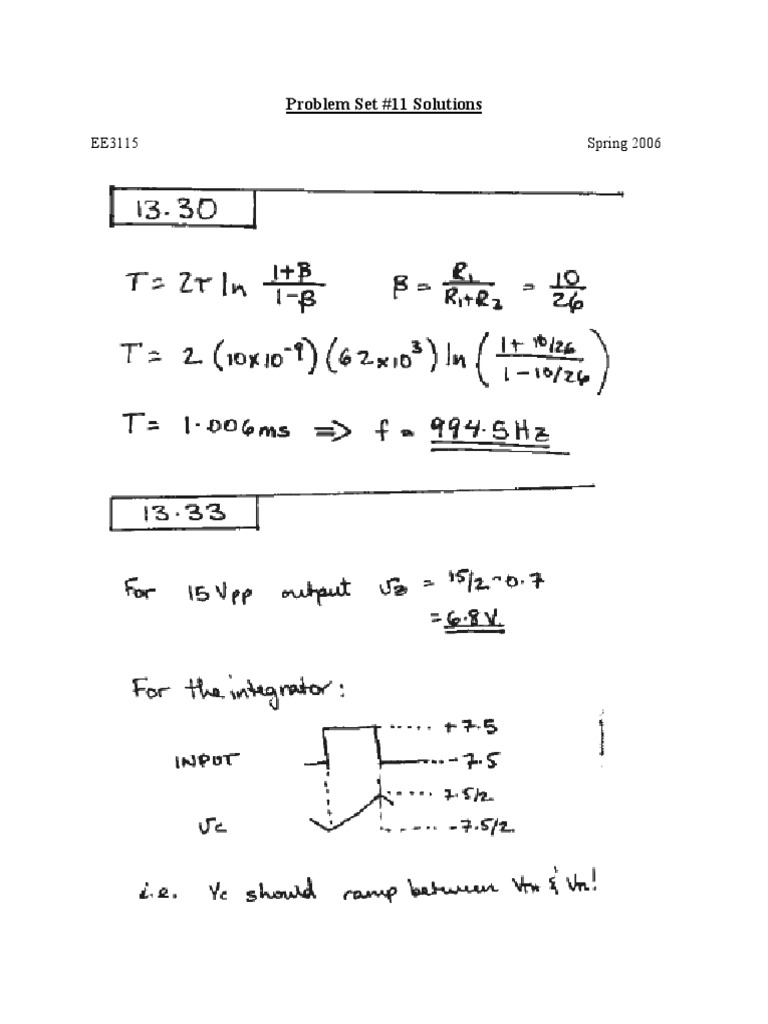 Problem Set #11 Solutions
EE3115 Spring 2006
13.30
T = 2τ ln (1+β)/(1-β) β = R1/(R1+R2) = 10/26
T = 2 (10×10^-9)(62×10^3) ln ((1+10/26)/(1-10/26))
T = 1.006ms => f = 994.5Hz
13.33
For 15Vpp output Vz = 15/2-0.7
= 6.8V.
For the integrator:
+7.5
INPUT -7.5
7.5/2
Vc -7.5/2
i.e. Vc should ramp between VTH & VTL!